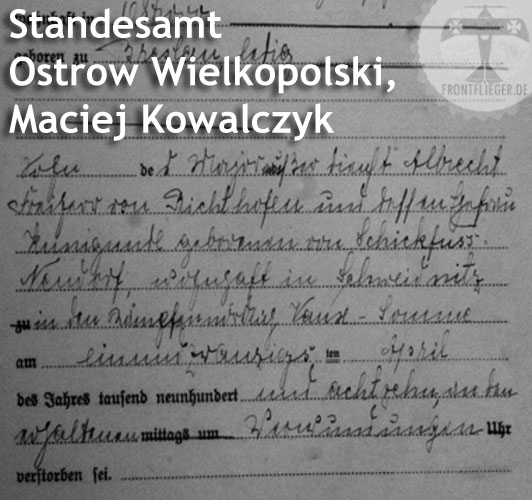 Standesamt
Ostrow Wielkopolski,
Maciej Kowalczyk
FRONTFLIEGER.DE
wohnhaft in Ostrowo
geboren zu Breslau, ledig
Sohn des Major außer Dienst Albrecht
Freiherr von Richthofen und dessen Ehefrau
Kunigunde geborenen von Schickfuss-
Neudorf, wohnhaft in Schweidnitz
zu in den Vaux-Somme
am einundzwanzigsten April
des Jahres tausend neunhundert und achtzehn, an den
erhaltenen mittags um Verwundungen Uhr
verstorben sei.